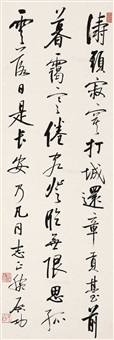 濤頭寂寞打城還章貢臺前
暮靄寒倦客登臨無限思孤
雲落日是長安 乃凡同志正腕 啟功